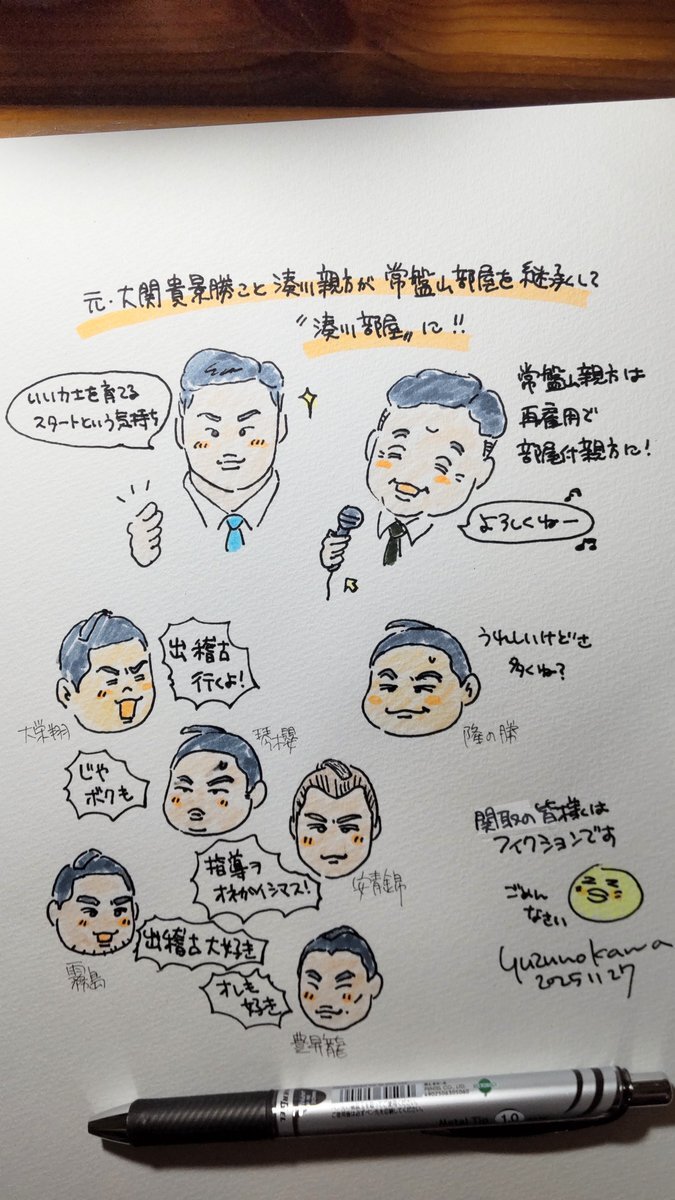 元・大関貴景勝こと湊川親方が常盤山部屋を継承して
〝湊川部屋〟に!!
いい力士を育てる
スタートという気持ち
常盤山親方は
再雇用で
部屋付親方に!
よろしくねー
出稽古
行くよ!
大栄翔
うれしいけどさ
多くね?
隆の勝
琴櫻
じゃ
ボクも
指導ヲ
オネガイシマス!
安青錦
関取の皆様は
フィクションです
ごめん
なさい
yuzunokawa
2025 11 27
出稽古大好き
霧島
オレも
好き
豊昇龍
Metal Tip 1.0